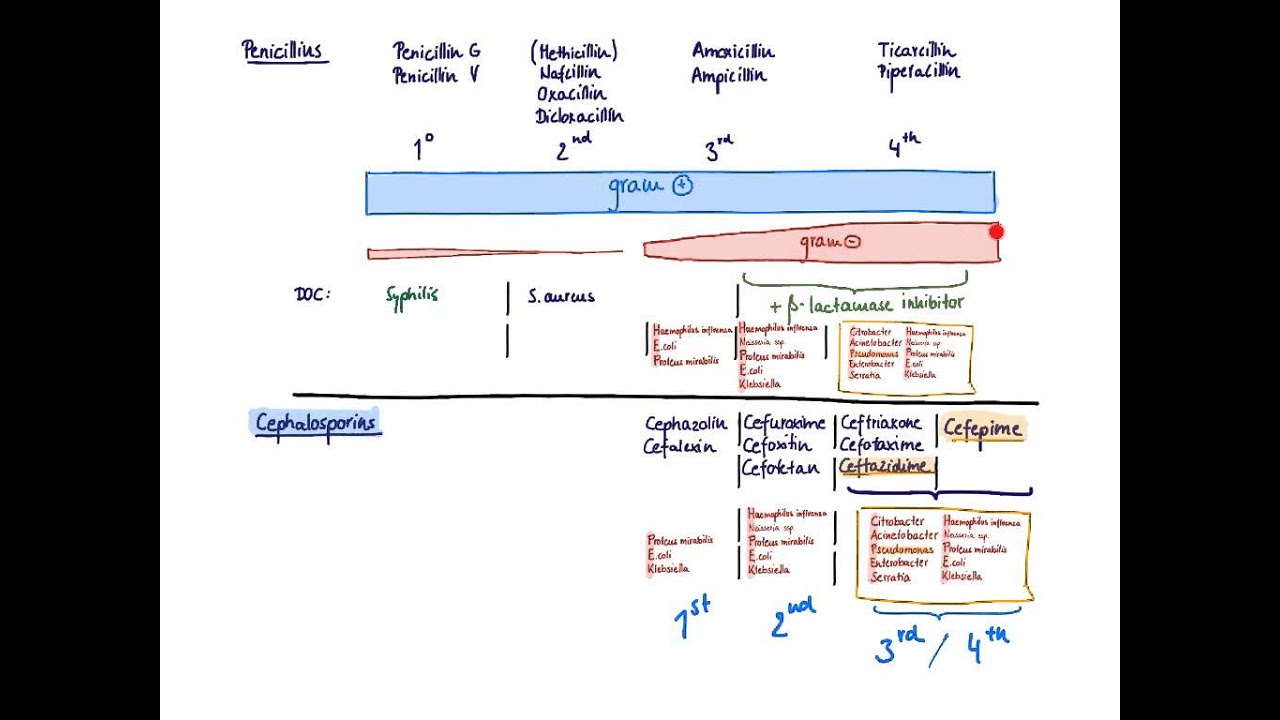 Penicillins
Penicillin G
Penicillin V
(Methicillin)
Nafcillin
Oxacillin
Dicloxacillin
Amoxicillin
Ampicillin
Ticarcillin
Piperacillin
1°
2nd
3rd
4th
gram +
gram -
DOC:
Syphilis
S. aureus
+ β-lactamase inhibitor
Haemophilus influenza
E. coli
Proteus mirabilis
Haemophilus influenza
Neisseria ssp.
Proteus mirabilis
E. coli
Klebsiella
Citrobacter
Acinetobacter
Pseudomonas
Enterobacter
Serratia
Haemophilus influenza
Neisseria ssp
Proteus mirabilis
E. coli
Klebsiella
Cephalosporins
Cephazolin
Cefalexin
Cefuroxime
Cefoxitin
Cefotetan
Ceftriaxone
Cefotaxime
Ceftazidime
Cefepime
Proteus mirabilis
E. coli
Klebsiella
Haemophilus influenza
Neisseria ssp.
Proteus mirabilis
E. coli
Klebsiella
Citrobacter
Acinetobacter
Pseudomonas
Enterobacter
Serratia
Haemophilus influenza
Neisseria ssp.
Proteus mirabilis
E. coli
Klebsiella
1st
2nd
3rd / 4th